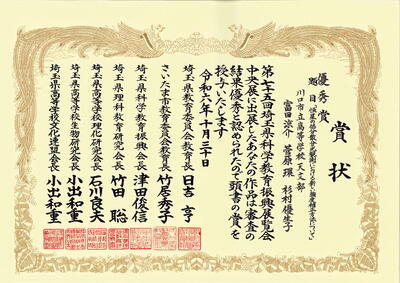 賞状
優秀賞
川口市立高等学校天文部
富田涼介 菅原環 杉村優生子
第七十五回埼玉県科学教育振興展覧会
中央展に出展したあなたの作品は審査の
結果優秀と認められたので頭書の賞を
授与いたします
令和六年十月三十日
埼玉県教育委員会教育長 日吉亨
さいたま市教育委員会教育長 竹居秀子
埼玉県科学教育振興会長 津田俊信
埼玉県理科教育研究会長 竹田聡
埼玉県高等学校理化研究会長 石川良夫
埼玉県高等学校生物研究会長 小出和重
埼玉県高等学校文化連盟会長 小出和重